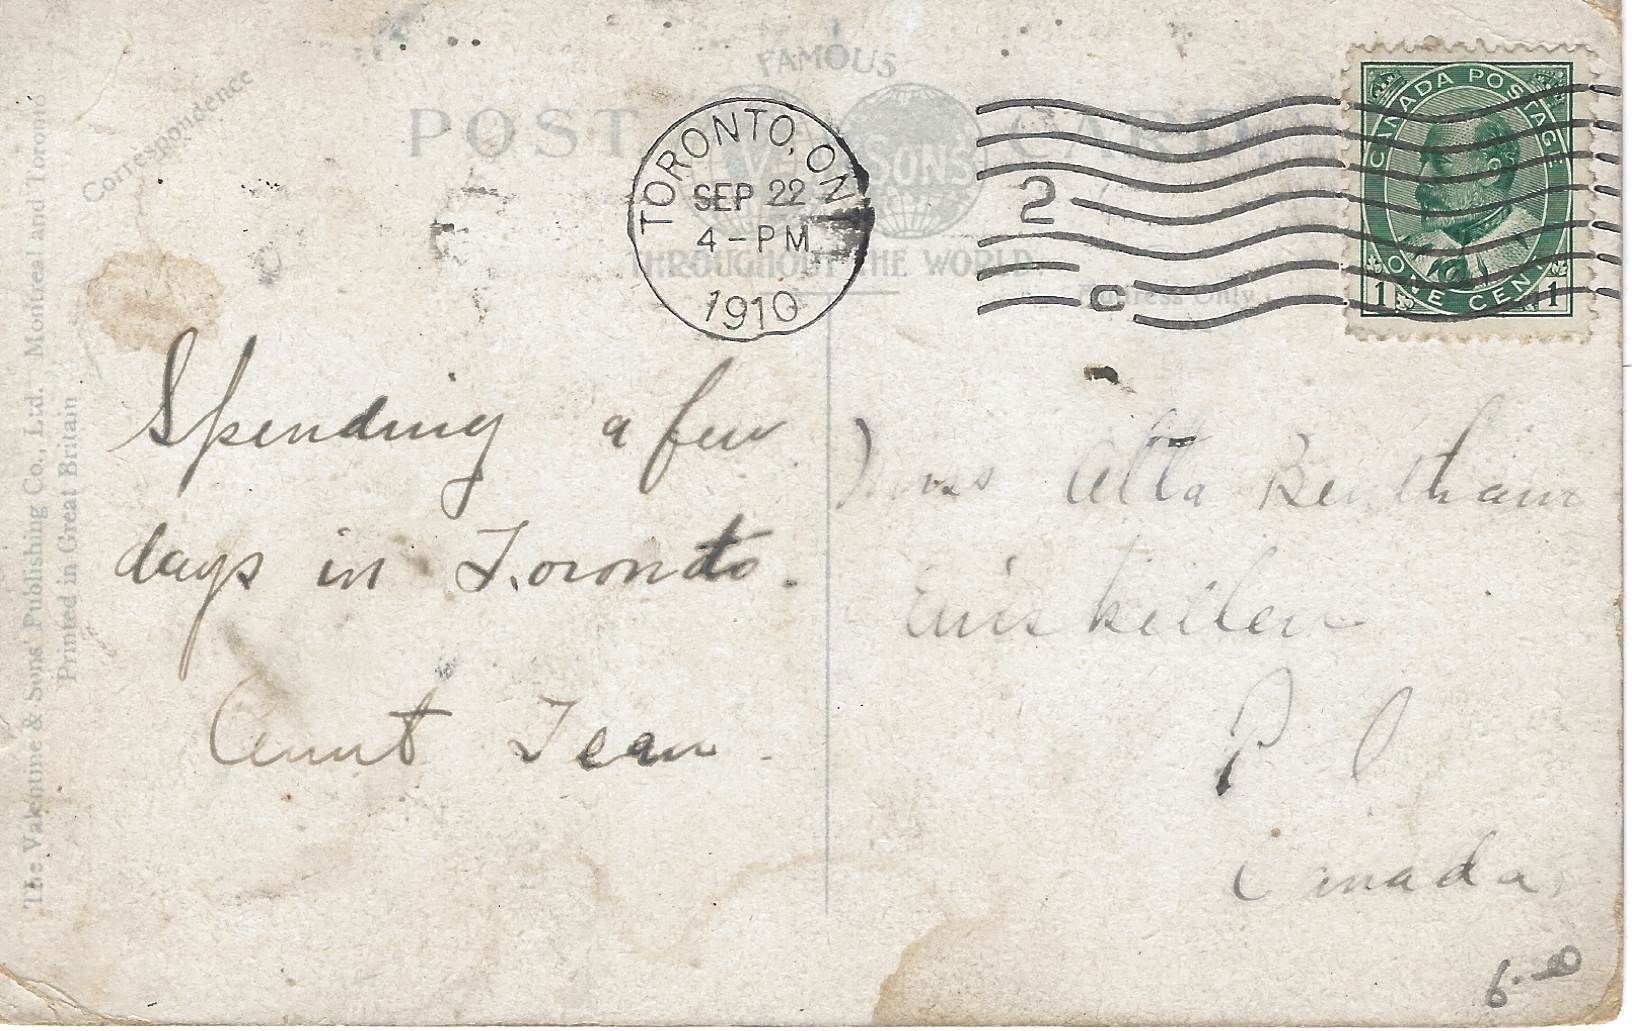 FAMOUS
POST CARD
V SONS
THROUGHOUT THE WORLD.
Correspondence
Address Only
TORONTO, ONT
SEP 22
4-PM
1910
2
C
CANADA POSTAGE
1 ONE CENT 1
Spending a few
days in Toronto.
Aunt Jean.
Miss Alta Bentham
Enniskillen
P O
Canada
6.00
The Valentine & Sons' Publishing Co., Ltd. Montreal and Toronto
Printed in Great Britain